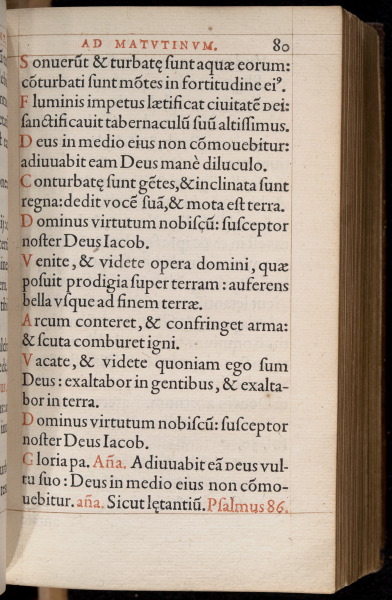 AD MATVTINVM. 80
Sonuerūt & turbatę sunt aquæ eorum:
cōturbati sunt mōtes in fortitudine ei⁹.
Fluminis impetus lætificat ciuitatē Dei:
sanctificauit tabernaculū suū altissimus.
Deus in medio eius non cōmouebitur:
adiuuabit eam Deus manè diluculo.
Conturbatę sunt gētes, & inclinata sunt
regna: dedit vocē suā, & mota est terra.
Dominus virtutum nobiscū: susceptor
noster Deus Iacob.
Venite, & videte opera domini, quæ
posuit prodigia super terram: auferens
bella vsque ad finem terræ.
Arcum conteret, & confringet arma:
& scuta comburet igni.
Vacate, & videte quoniam ego sum
Deus: exaltabor in gentibus, & exalta-
bor in terra.
Dominus virtutum nobiscū: susceptor
noster Deus Iacob.
Gloria pa. Aña. Adiuuabit eā Deus vul-
tu suo: Deus in medio eius non cōmo-
uebitur. aña. Sicut lętantiū. Psalmus 86.